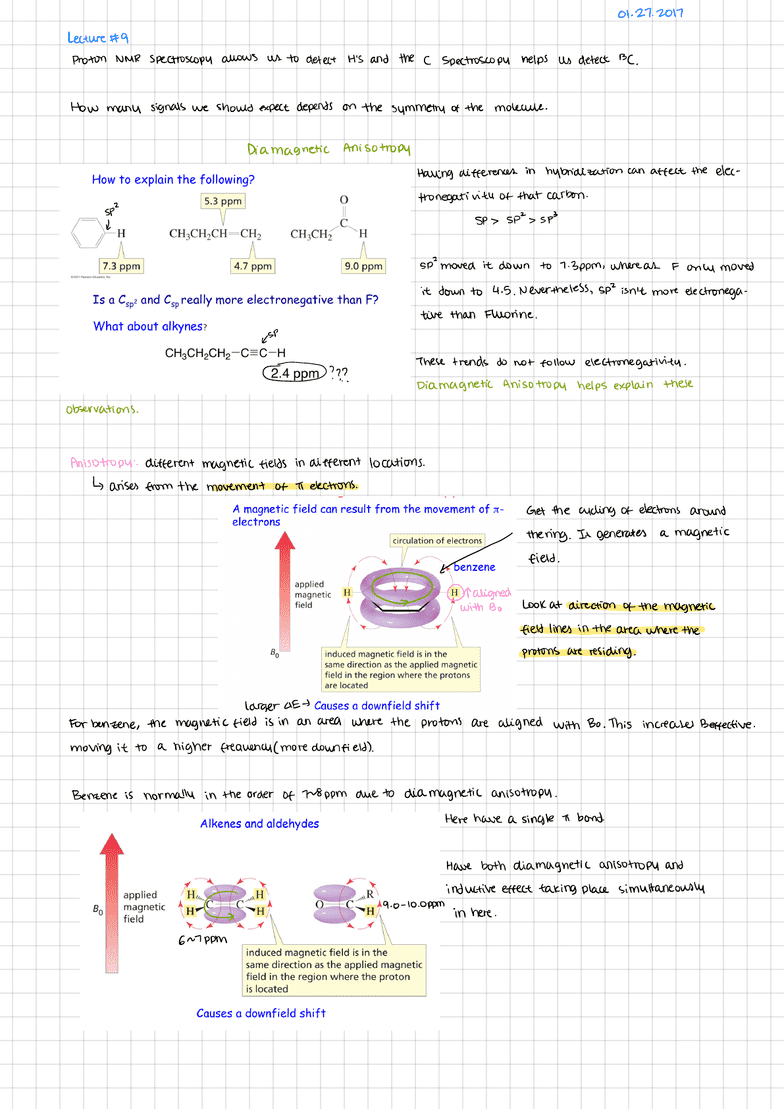 01.27.2017
Lecture #9
Proton NMR Spectroscopy allows us to detect H's and the C Spectroscopy helps us detect ¹³C.
How many signals we should expect depends on the symmetry of the molecule.
Diamagnetic Anisotropy
How to explain the following?
sp²
H
7.3 ppm
5.3 ppm
CH₃CH₂CH=CH₂
4.7 ppm
O
C
CH₃CH₂ H
9.0 ppm
Is a Csp² and Csp really more electronegative than F?
What about alkynes?
sp
CH₃CH₂CH₂–C≡C–H
2.4 ppm ???
Having differences in hybridization can affect the elec-
tronegativity of that carbon.
sp > sp² > sp³
sp² moved it down to 7.3ppm, whereas F only moved
it down to 4.5. Nevertheless, sp² isn't more electronega-
tive than Fluorine.
These trends do not follow electronegativity.
Diamagnetic Anisotropy helps explain these
observations.
Anisotropy: different magnetic fields in different locations.
↳ arises from the movement of π electrons.
A magnetic field can result from the movement of π-
electrons
circulation of electrons
benzene
applied
magnetic
field
B₀
H
H ↑ aligned
with B₀
induced magnetic field is in the
same direction as the applied magnetic
field in the region where the protons
are located
larger ΔE → Causes a downfield shift
Get the cycling of electrons around
the ring. It generates a magnetic
field.
Look at direction of the magnetic
field lines in the area where the
protons are residing.
For benzene, the magnetic field is in an area where the protons are aligned with B₀. This increases Beffective.
moving it to a higher frequency (more downfield).
Benzene is normally in the order of 7~8 ppm due to diamagnetic anisotropy.
Alkenes and aldehydes
applied
magnetic
field
B₀
H H
C C
H H
6~7 ppm
O C R
H
9.0-10.0ppm
induced magnetic field is in the
same direction as the applied magnetic
field in the region where the proton
is located
Causes a downfield shift
Here have a single π bond
Have both diamagnetic anisotropy and
inductive effect taking place simultaneously
in here.